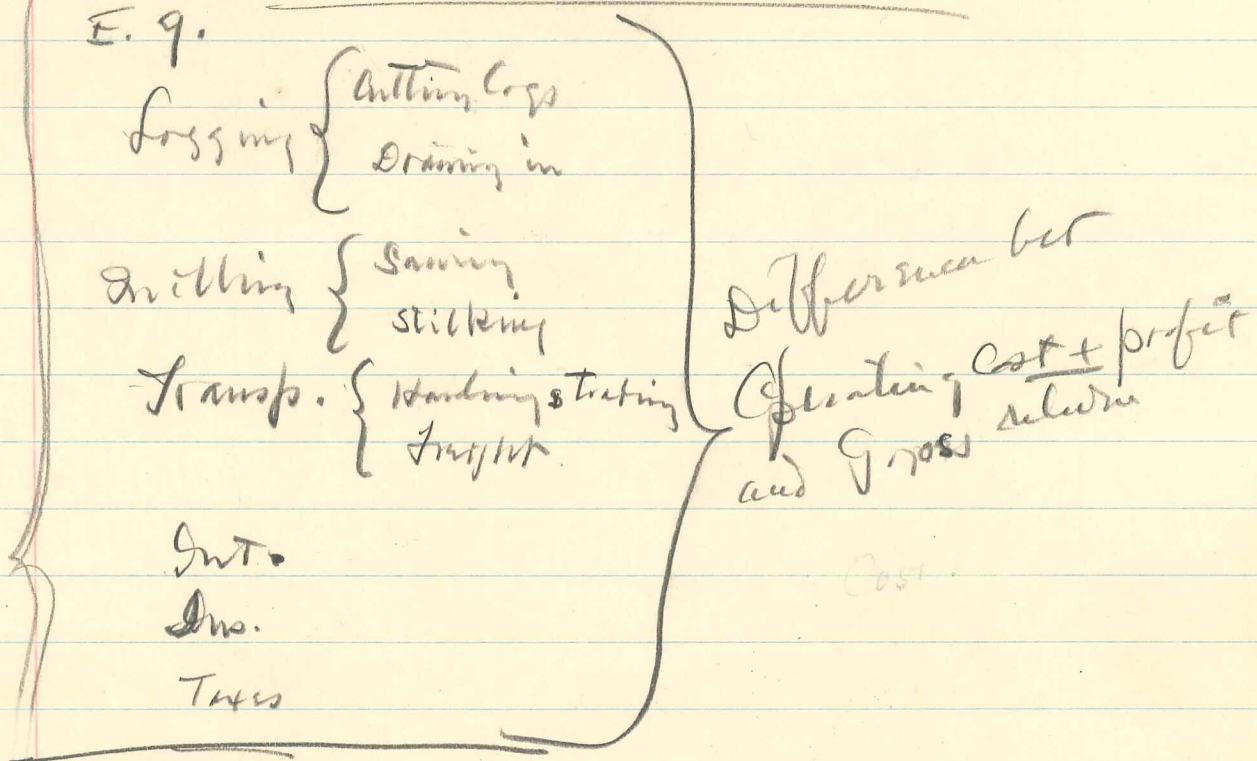 E.g.
Logging { Cutting Logs
Drawing in
Milling { Sawing
Sticking
Transp. { Hauling & Loading
Freight
Int.
Ins.
Taxes
Difference bet
Operating Cost + profit
and Gross
Cost.